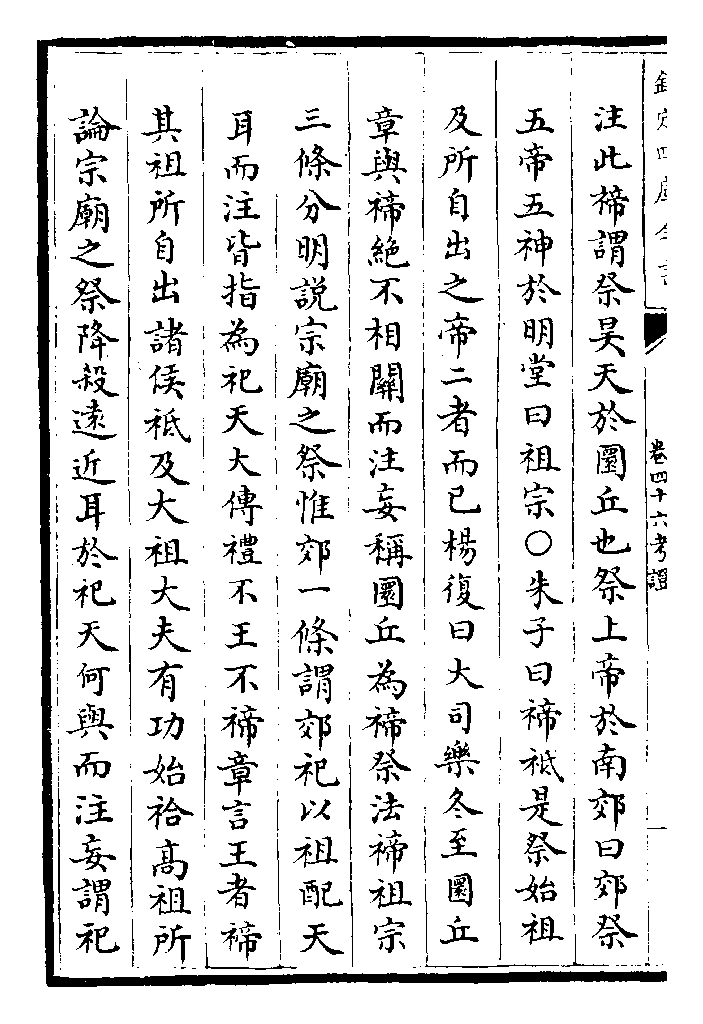 欽定四庫全書
卷四十六考證
注此禘謂祭昊天於圜丘也祭上帝於南郊曰郊祭
五帝五神於明堂曰祖宗〇朱子曰禘祗是祭始祖
及所自出之帝二者而已楊復曰大司樂冬至圜丘
章與禘絶不相關而注妄稱圜丘為禘祭法禘祖宗
三條分明説宗廟之祭惟郊一條謂郊祀以祖配天
耳而注皆指為祀天大傳禮不王不禘章言王者禘
其祖所自出諸侯祗及大祖大夫有功始祫髙祖所
論宗廟之祭降殺逺近耳於祀天何與而注妄謂祀